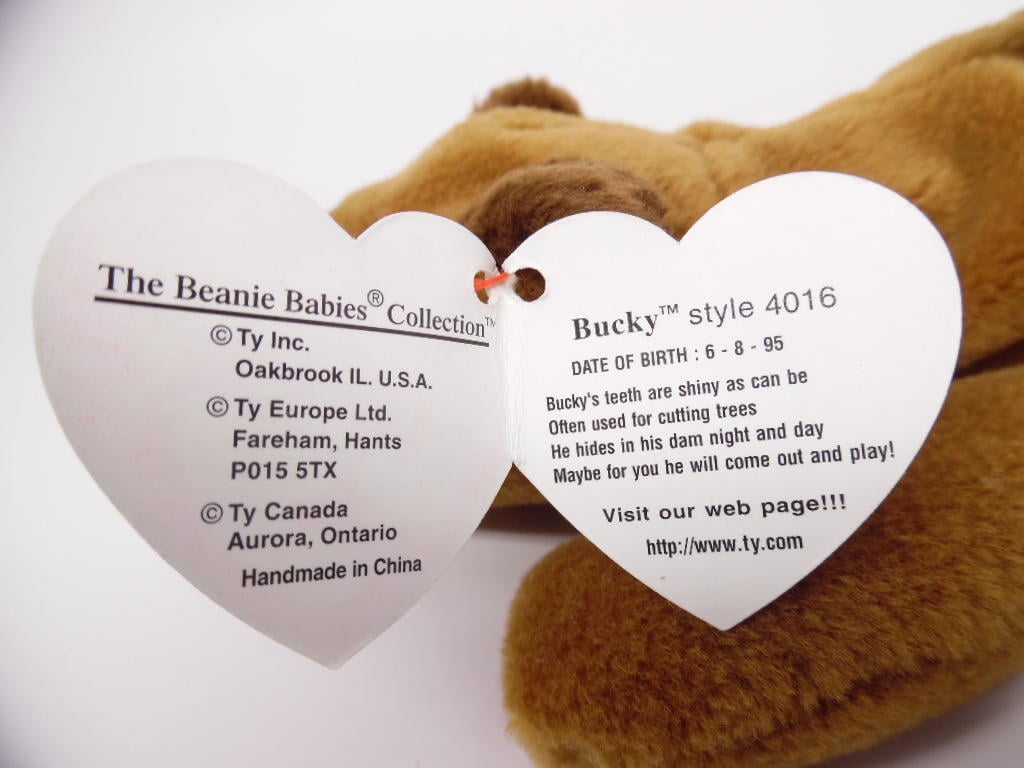 The Beanie Babies® Collection™
© Ty Inc.
Oakbrook IL. U.S.A.
© Ty Europe Ltd.
Fareham, Hants
P015 5TX
© Ty Canada
Aurora, Ontario
Handmade in China
Bucky™ style 4016
DATE OF BIRTH : 6 - 8 - 95
Bucky's teeth are shiny as can be
Often used for cutting trees
He hides in his dam night and day
Maybe for you he will come out and play!
Visit our web page!!!
http://www.ty.com